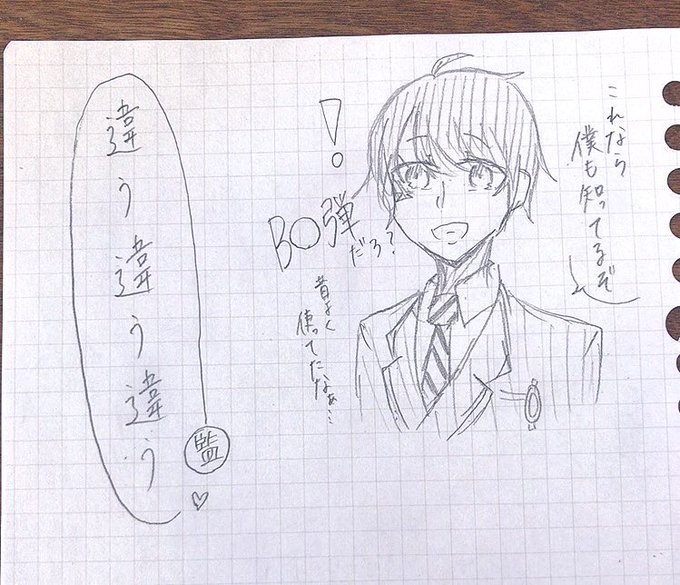 これなら
僕も知ってるぞ
!
BO弾
だろ?
昔よく
使ってたなぁ…
違う違う違う
監
♡